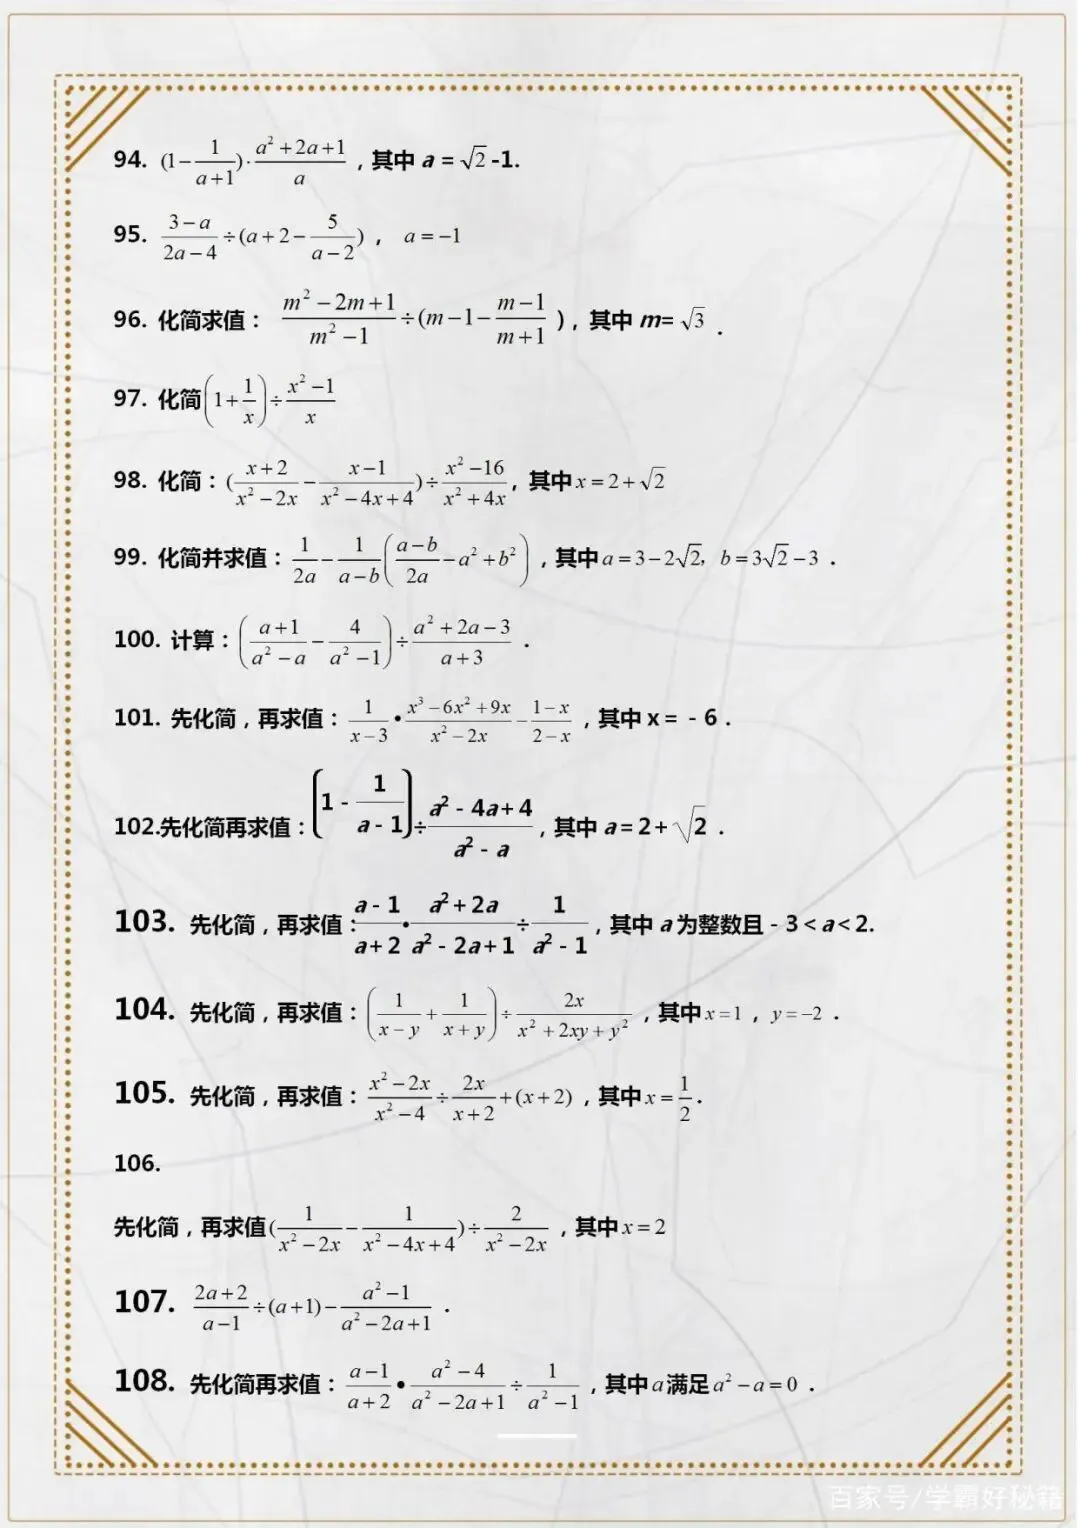 94. (1-\frac{1}{a+1})·\frac{a^2+2a+1}{a}，其中 a = √2 -1.
95. \frac{3-a}{2a-4}÷(a+2-\frac{5}{a-2})， a=-1
96. 化简求值： \frac{m^2-2m+1}{m^2-1}÷(m-1-\frac{m-1}{m+1})，其中 m= √3 .
97. 化简(1+\frac{1}{x})÷\frac{x^2-1}{x}
98. 化简：(\frac{x+2}{x^2-2x}-\frac{x-1}{x^2-4x+4})÷\frac{x^2-16}{x^2+4x}，其中x=2+√2
99. 化简并求值：\frac{1}{2a}-\frac{1}{a-b}(\frac{a-b}{2a}-a^2+b^2)，其中a=3-2√2，b=3√2-3．
100. 计算：(\frac{a+1}{a^2-a}-\frac{4}{a^2-1})÷\frac{a^2+2a-3}{a+3}．
101. 先化简，再求值：\frac{1}{x-3}•\frac{x^3-6x^2+9x}{x^2-2x}-\frac{1-x}{2-x}，其中 x = - 6．
102.先化简再求值：(1-\frac{1}{a-1})÷\frac{a^2-4a+4}{a^2-a}，其中 a=2+√2．
103. 先化简，再求值：\frac{a-1}{a+2}•\frac{a^2+2a}{a^2-2a+1}÷\frac{1}{a^2-1}，其中 a 为整数且 - 3 < a < 2.
104. 先化简，再求值：(\frac{1}{x-y}+\frac{1}{x+y})÷\frac{2x}{x^2+2xy+y^2}，其中x=1，y=-2．
105. 先化简，再求值：\frac{x^2-2x}{x^2-4}÷\frac{2x}{x+2}+(x+2)，其中x=\frac{1}{2}.
106.
先化简，再求值(\frac{1}{x^2-2x}-\frac{1}{x^2-4x+4})÷\frac{2}{x^2-2x}，其中x=2
107. \frac{2a+2}{a-1}÷(a+1)-\frac{a^2-1}{a^2-2a+1}．
108. 先化简再求值：\frac{a-1}{a+2}•\frac{a^2-4}{a^2-2a+1}÷\frac{1}{a^2-1}，其中a满足a^2-a=0．
百家号/学霸好秘籍